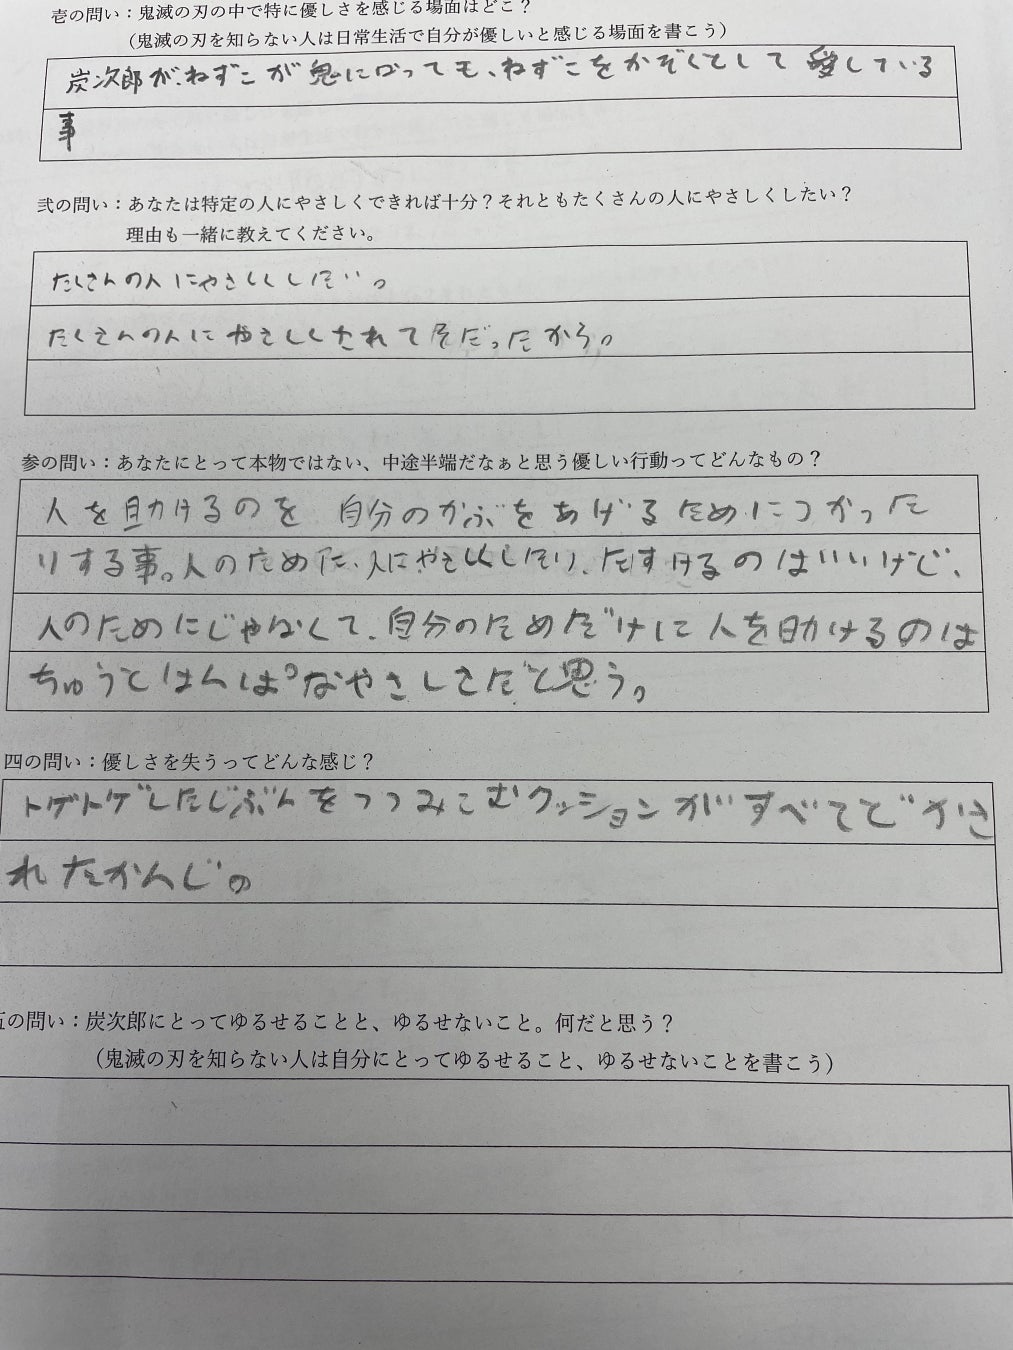 壱の問い：鬼滅の刃の中で特に優しさを感じる場面はどこ？
（鬼滅の刃を知らない人は日常生活で自分が優しいと感じる場面を書こう）
炭次郎が、ねずこが鬼になっても、ねずこをかぞくとして愛している
事
弐の問い：あなたは特定の人にやさしくできれば十分？それともたくさんの人にやさしくしたい？
理由も一緒に教えてください。
たくさんの人にやさしくしたい。
たくさんの人にやさしくされてそだったから。
参の問い：あなたにとって本物ではない、中途半端だなぁと思う優しい行動ってどんなもの？
人を助けるのを 自分のかぶをあげるためにつかった
りする事。人のために、人にやさしくしたり、たすけるのはいいけど、
人のためにじゃなくて、自分のためだけに人を助けるのは
ちゅうとはんぱなやさしさだと思う。
四の問い：優しさを失うってどんな感じ？
トゲトゲしたじぶんをつつみこむクッションがすべてどかさ
れたかんじ。
五の問い：炭次郎にとってゆるせることと、ゆるせないこと。何だと思う？
（鬼滅の刃を知らない人は自分にとってゆるせること、ゆるせないことを書こう）